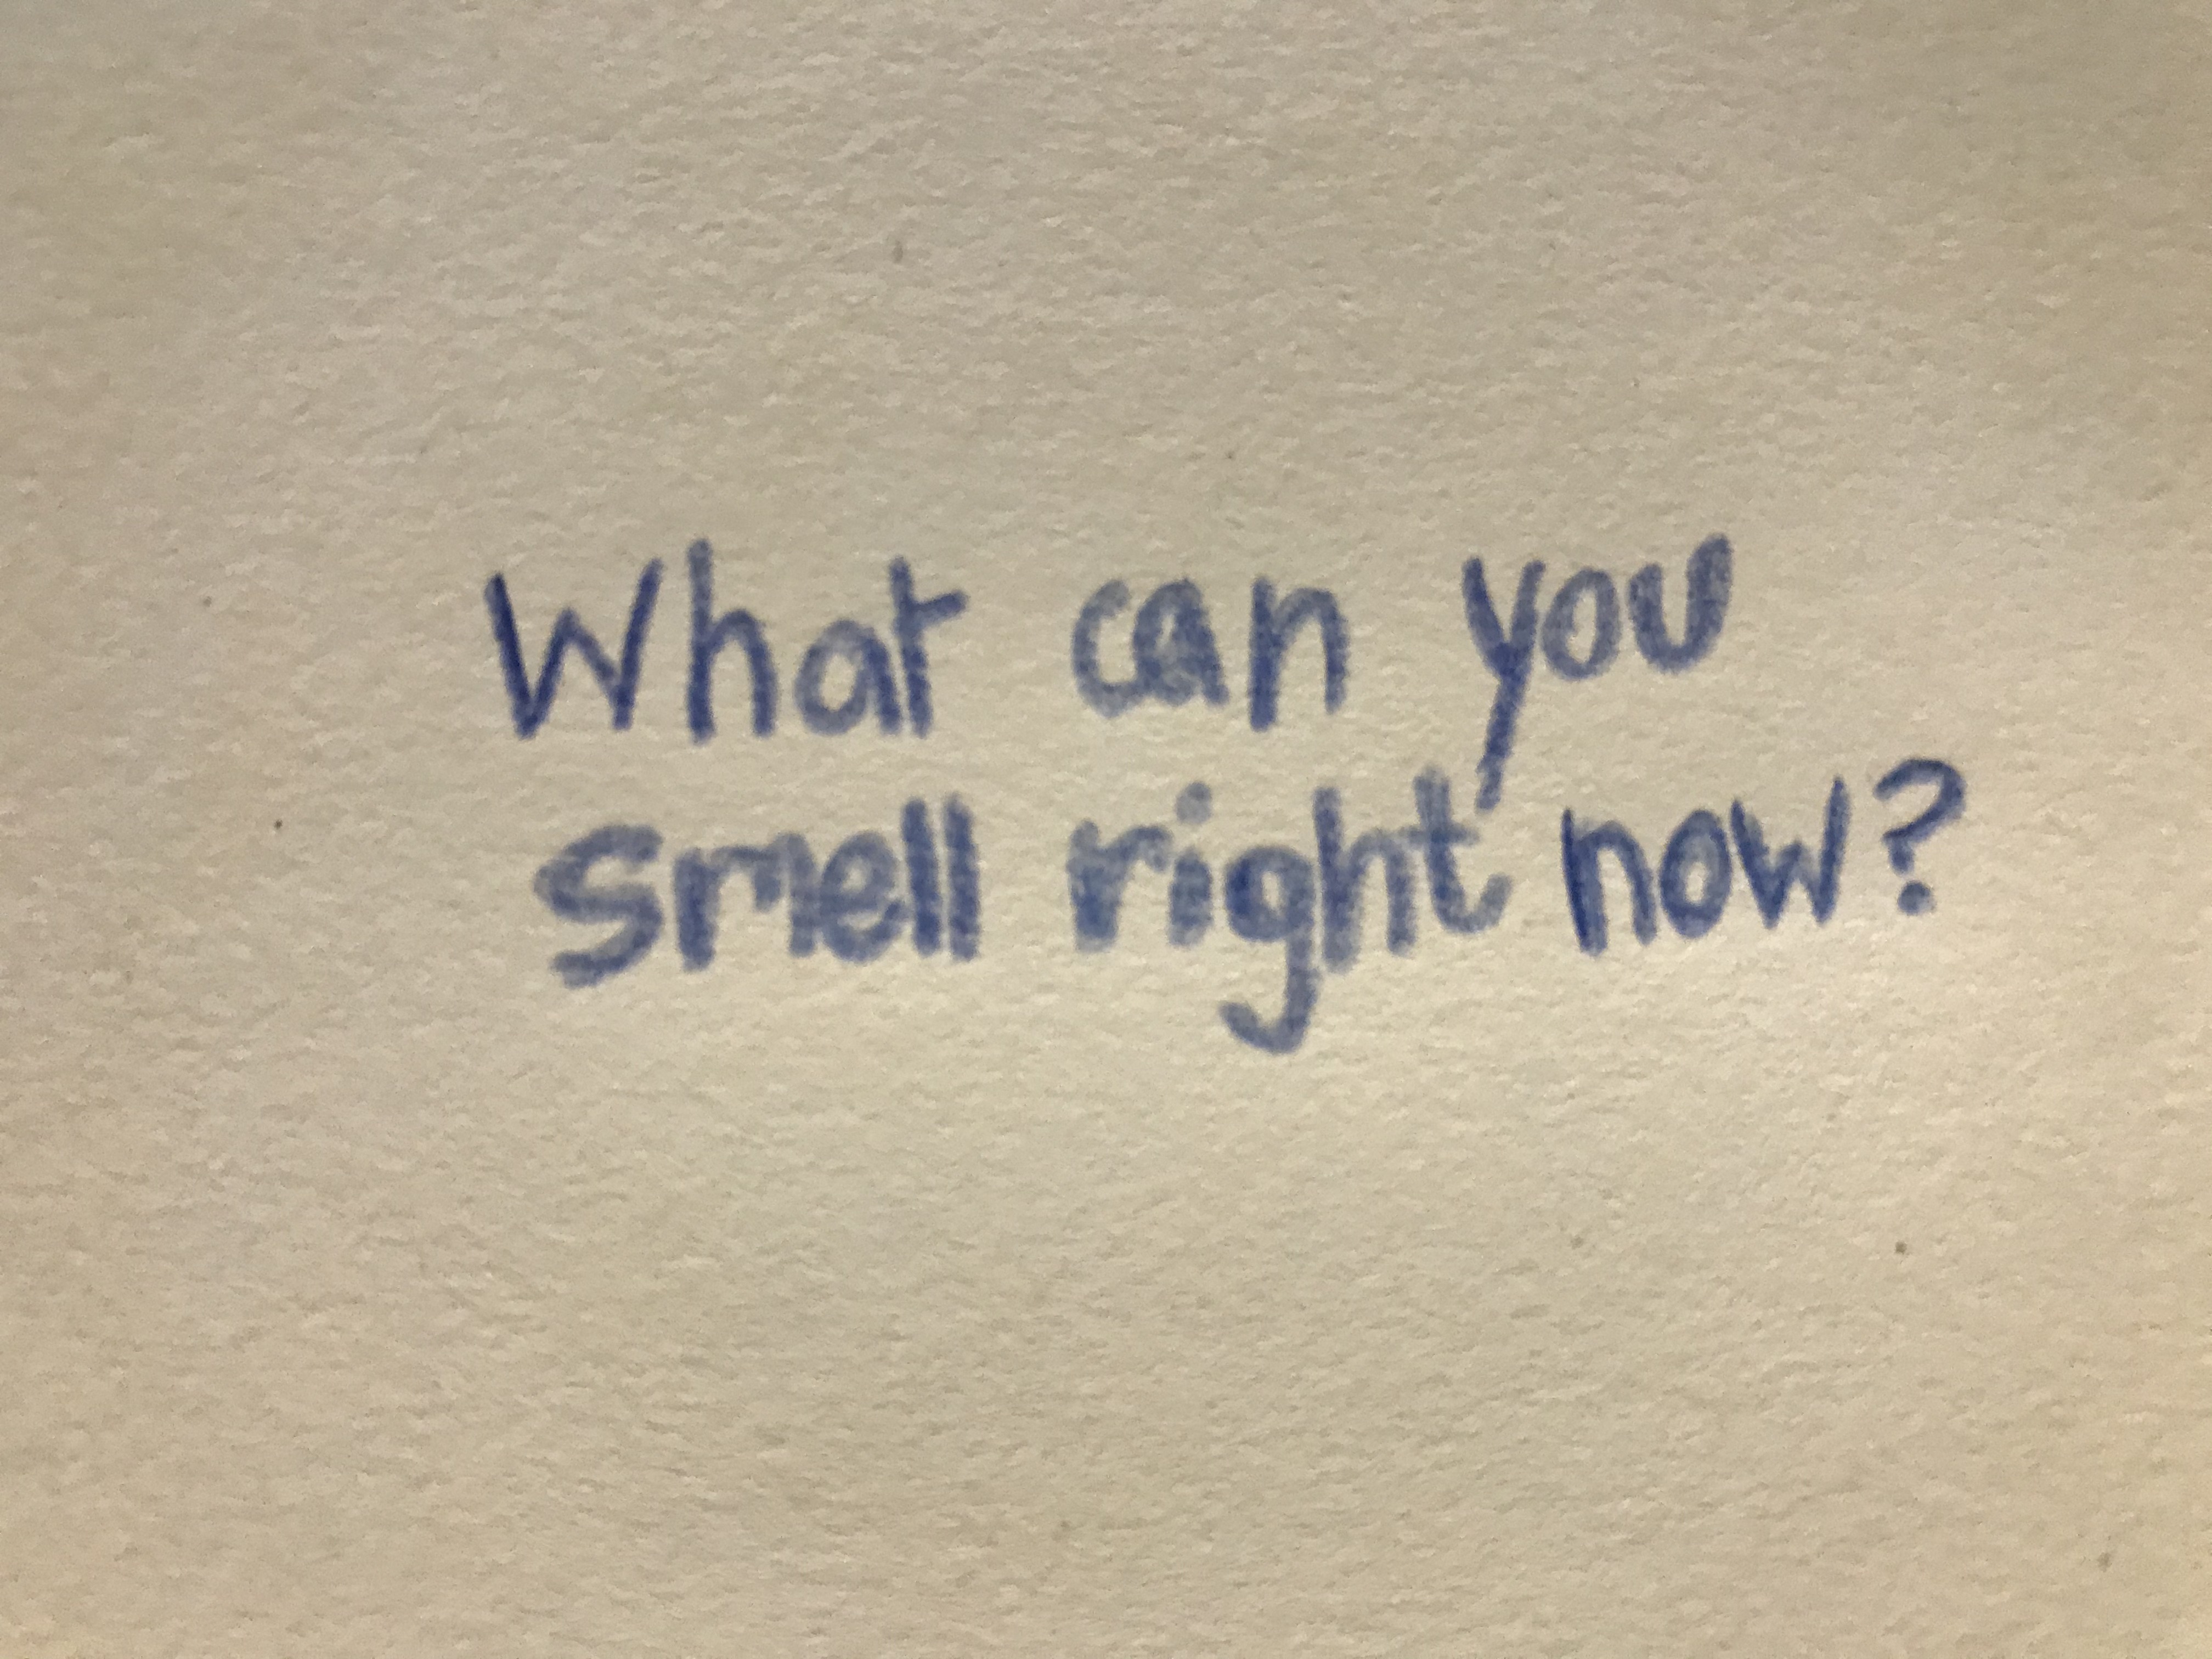 What can you
smell right now?